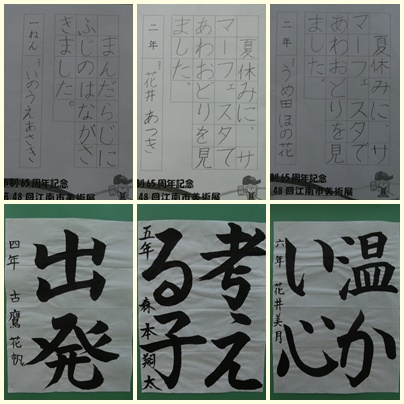 まんだらじに
ふじのはながさ
きました。
一ねん いのうえあさき
制65周年記念
48回江南市美術展
夏休みに、サ
マーフェスタで
あわおどりを見
ました。
二年 花井あつき
制65周年記念
48回江南市美術展
夏休みに、サ
マーフェスタで
あわおどりを見
ました。
二年 うめ田ほの花
制65周年記念
48回江南市美術展
出発
四年 古鷹花帆
考え
る子
五年 森本翔太
温か
い心
六年 花井美月